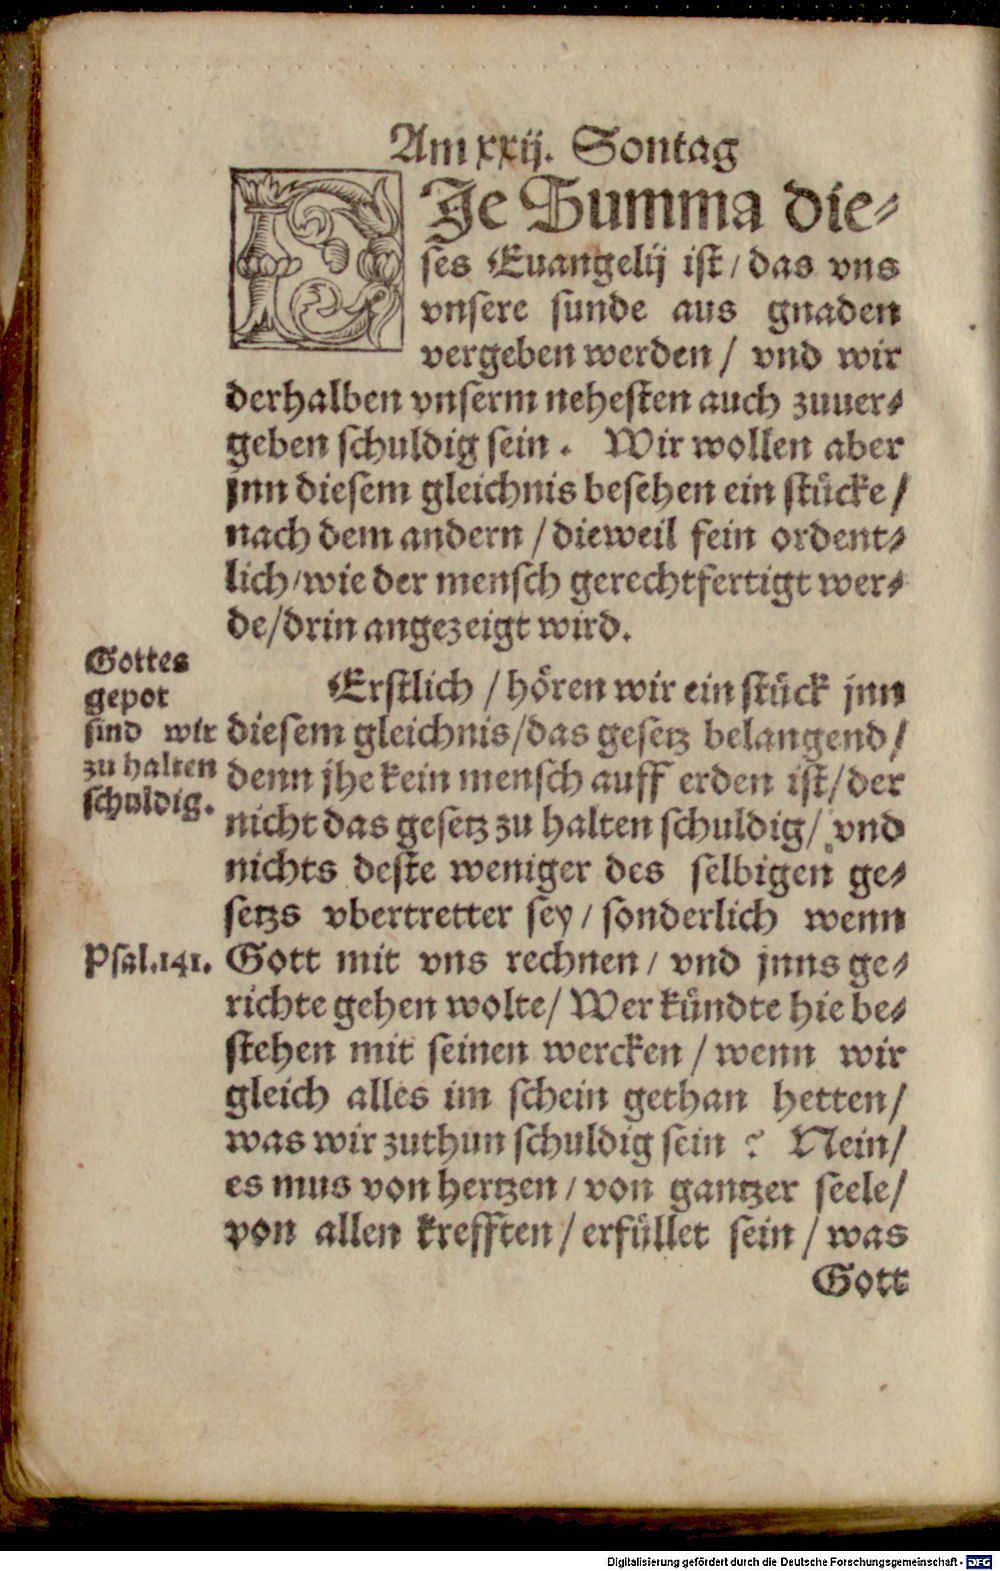 Am xxij. Sontag
DJe Summa die-
ses Euangelij ist / das vns
vnsere sunde aus gnaden
vergeben werden / vnd wir
derhalben vnserm nehesten auch zuuer-
geben schuldig sein. Wir wollen aber
jnn diesem gleichnis besehen ein stücke /
nach dem andern / dieweil fein ordent-
lich / wie der mensch gerechtfertigt wer-
de / drin angezeigt wird.
Gottes
gepot
sind wir
zu halten
schuldig.
Erstlich / hören wir ein stück jnn
diesem gleichnis / das gesetz belangend /
denn jhe kein mensch auff erden ist / der
nicht das gesetz zu halten schuldig / vnd
nichts deste weniger des selbigen ge-
setzs vbertretter sey / sonderlich wenn
Psal.141.
Gott mit vns rechnen / vnd jnns ge-
richte gehen wolte / Wer kündte hie be-
stehen mit seinen wercken / wenn wir
gleich alles im schein gethan hetten /
was wir zuthun schuldig sein ? Nein /
es mus von hertzen / von gantzer seele /
von allen krefften / erfüllet sein / was
Gott
Digitalisierung gefördert durch die Deutsche Forschungsgemeinschaft - DFG